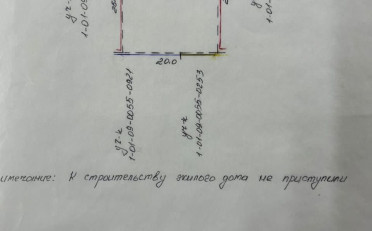 20.0
уч-к
1-01-09-0055-0921
уч-к
1-01-09-0055-0253
имечание: К строительству жилого дома не приступили